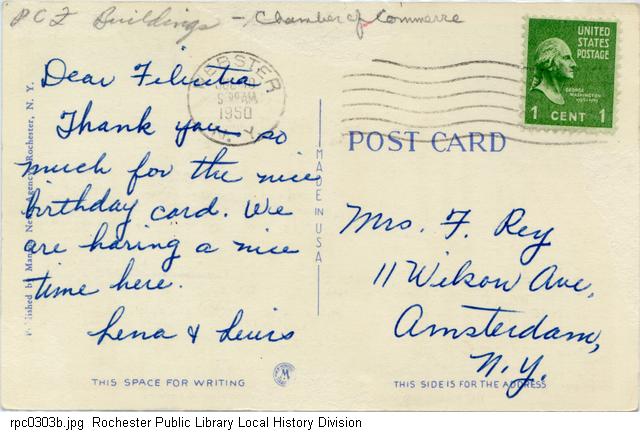 PCZ Buildings - Chamber of Commerce
UNITED
STATES
POSTAGE
GEORGE
WASHINGTON
1 CENT 1
WEBSTER
1950
N.Y.
POST CARD
Dear Felicitia
Thank you so
much for the nice
birthday card. We
are having a nice
time here.
Lena & Lewis
THIS SPACE FOR WRITING
Published by Manson News Agency, Rochester, N. Y.
MADE IN USA
Mrs. F. Rey
11 Wilson Ave,
Amsterdam,
N.Y.
THIS SIDE IS FOR THE ADDRESS
rpc0303b.jpg Rochester Public Library Local History Division